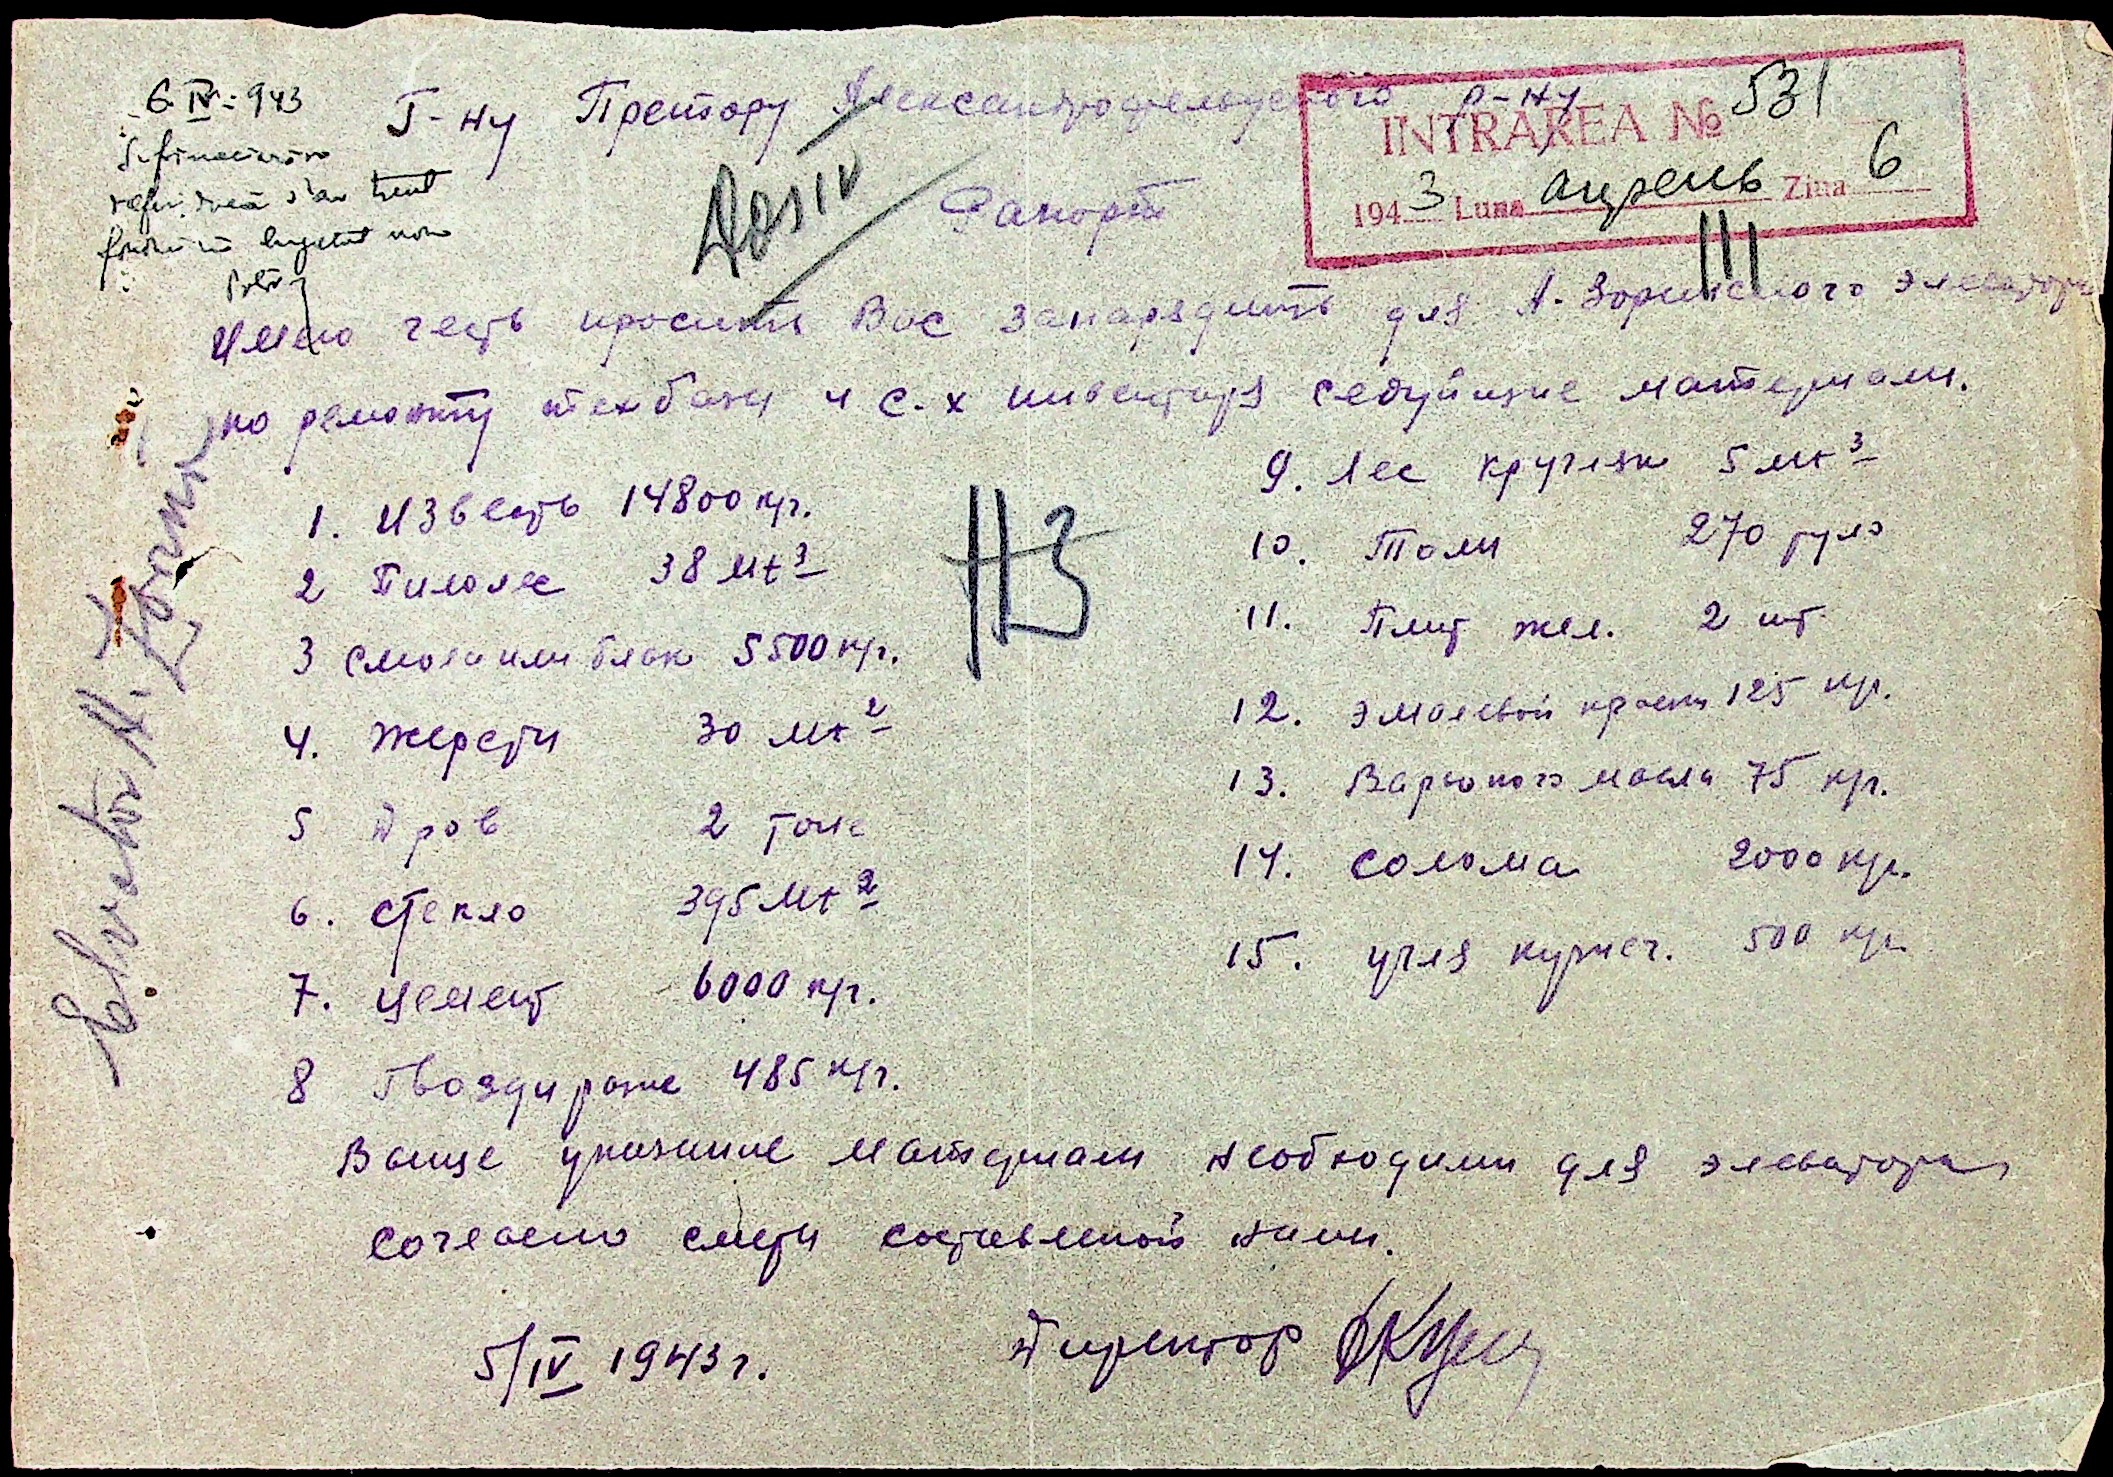 6 IV 943
Г-ну Претору Александрофельдского р-ну
INTRAREA № 531
1943 Luna апрель Ziua 6
III
Dosiv
Рапорт
Имею честь просить Вас занарядить для Н. Зоринского элеватора
по ремонту техбазы и с.-х инвентаря следующие материалы.
1. Известь 14800 кгр.
2 Пилолес 38 мт³
3 смола или блак 5500 кгр.
4. жерсти 30 мт²
5 Дров 2 тоне
6. стекло 395 мт²
7. цемент 6000 кгр.
8 Гвозди разне 485 кгр.
НЗ
9. Лес кругляк 5 мт³
10. Толи 270 руло
11. Плит жел. 2 шт.
12. эмалевой краски 125 кгр.
13. Вареного масла 75 кгр.
14. солома 2000 кгр.
15. угля кузнеч. 500 кгр.
Выше указание материали необходими для элеватора
согласно смети составленой нами.
5/IV 1943 г. Директор
Elvator N. Zorini